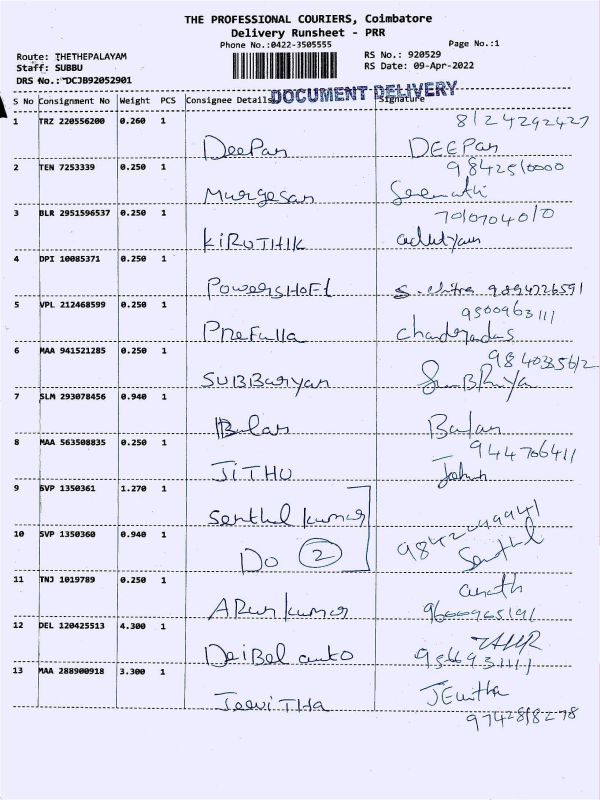 THE PROFESSIONAL COURIERS, Coimbatore
Delivery Runsheet - PRR
Phone No.:0422-3505555
Page No.:1
Route: THETHEPALAYAM
Staff: SUBBU
DRS No.: DCJB92052901
RS No.: 920529
RS Date: 09-Apr-2022
DOCUMENT DELIVERY
S No Consignment No Weight PCS Consignee Details Signature
1 TRZ 220556200 0.260 1
8124292427
DeePan DEEPan
2 TEN 7253339 0.250 1
9842510000
Murgesan
3 BLR 2951596537 0.250 1
7010704010
KIRUTHIK
4 DPI 10085371 0.250 1
POWERSHOFt S. chitra 9894726591
5 VPL 212468599 0.250 1
9500963111
Prefulla
6 MAA 941521285 0.250 1
SUBBariyan
7 SLM 293078456 0.940 1
Balan Balan
8 MAA 563508835 0.250 1
944706411
JITHU
9 SVP 1350361 1.270 1
Senthil kumar
10 SVP 1350360 0.940 1
Do 2 Senthil
11 TNJ 1019789 0.250 1
ARun kumar 9600965191
12 DEL 120425513 4.300 1
DeiBel auto 9566931111
13 MAA 288900918 3.300 1
JeeviTHa
9742818278